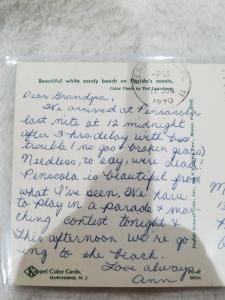 Beautiful white sandy beach on Florida's coasts.
Color Photo by Ted Lagerberg
PM
JUN
1979
Dear Grandpa,
We arrived at Pensacola
last nite at 12 midnight
after 3-hrs. delay with bus
trouble (no gas & broken gears)
Needless, to say, we were dead.
Penscola is beautiful from
what I've seen. We have
to play in a parade & mar
ching contest tonight &
this afternoon we're go
ing to the beach.
Love always,
Ann
Koppel Color Cards
HAWTHORNE, N. J.